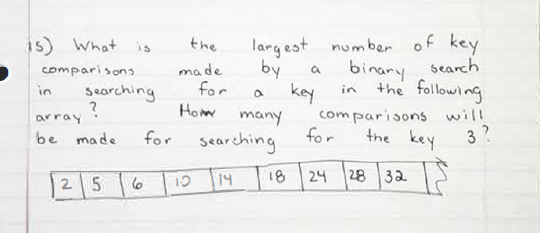 15) What is the largest number of key
comparisons made by a binary search
in searching for a key in the following
array? How many comparisons will
be made for searching for the key 3?
2 5 6 10 14 18 24 28 32